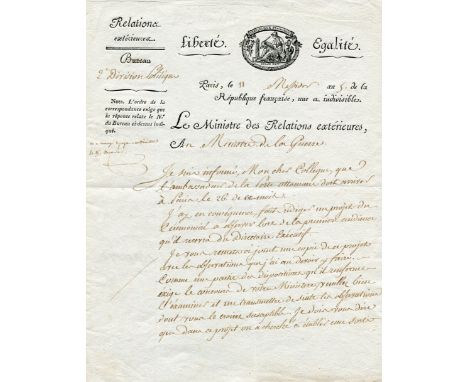 Relations
extérieures.
Bureau
2e Division Politique
Nota. L'ordre de la
correspondance exige que
la réponse relate le No.
du Bureau ci-dessus indi-
qué.
Liberté. Egalité.
Paris, le 11 Messidor an 5. de la
République française, une et indivisible.
Le Ministre des Relations extérieures,
Au Ministre de la Guerre
Je suis informé, Mon cher Collègue, que
l'ambassadeur de la Porte ottomane doit arriver
à Paris le 26 de ce mois.
J'ai en conséquence fait rédiger un projet du
Cérémonial à observer lors de la première audience
qu'il recevra du Directoire Exécutif
Je vous remets ci-joint une copie de ce projet
avec les observations que j'ai cru devoir y faire.
Comme une partie des dispositions qu'il renferme
exige le concours de votre Ministère, veuillez bien
l'examiner et me transmettre de suite les observations
dont vous le croirez susceptible. Je dois vous dire
que dans ce projet on a cherché à établir une sorte